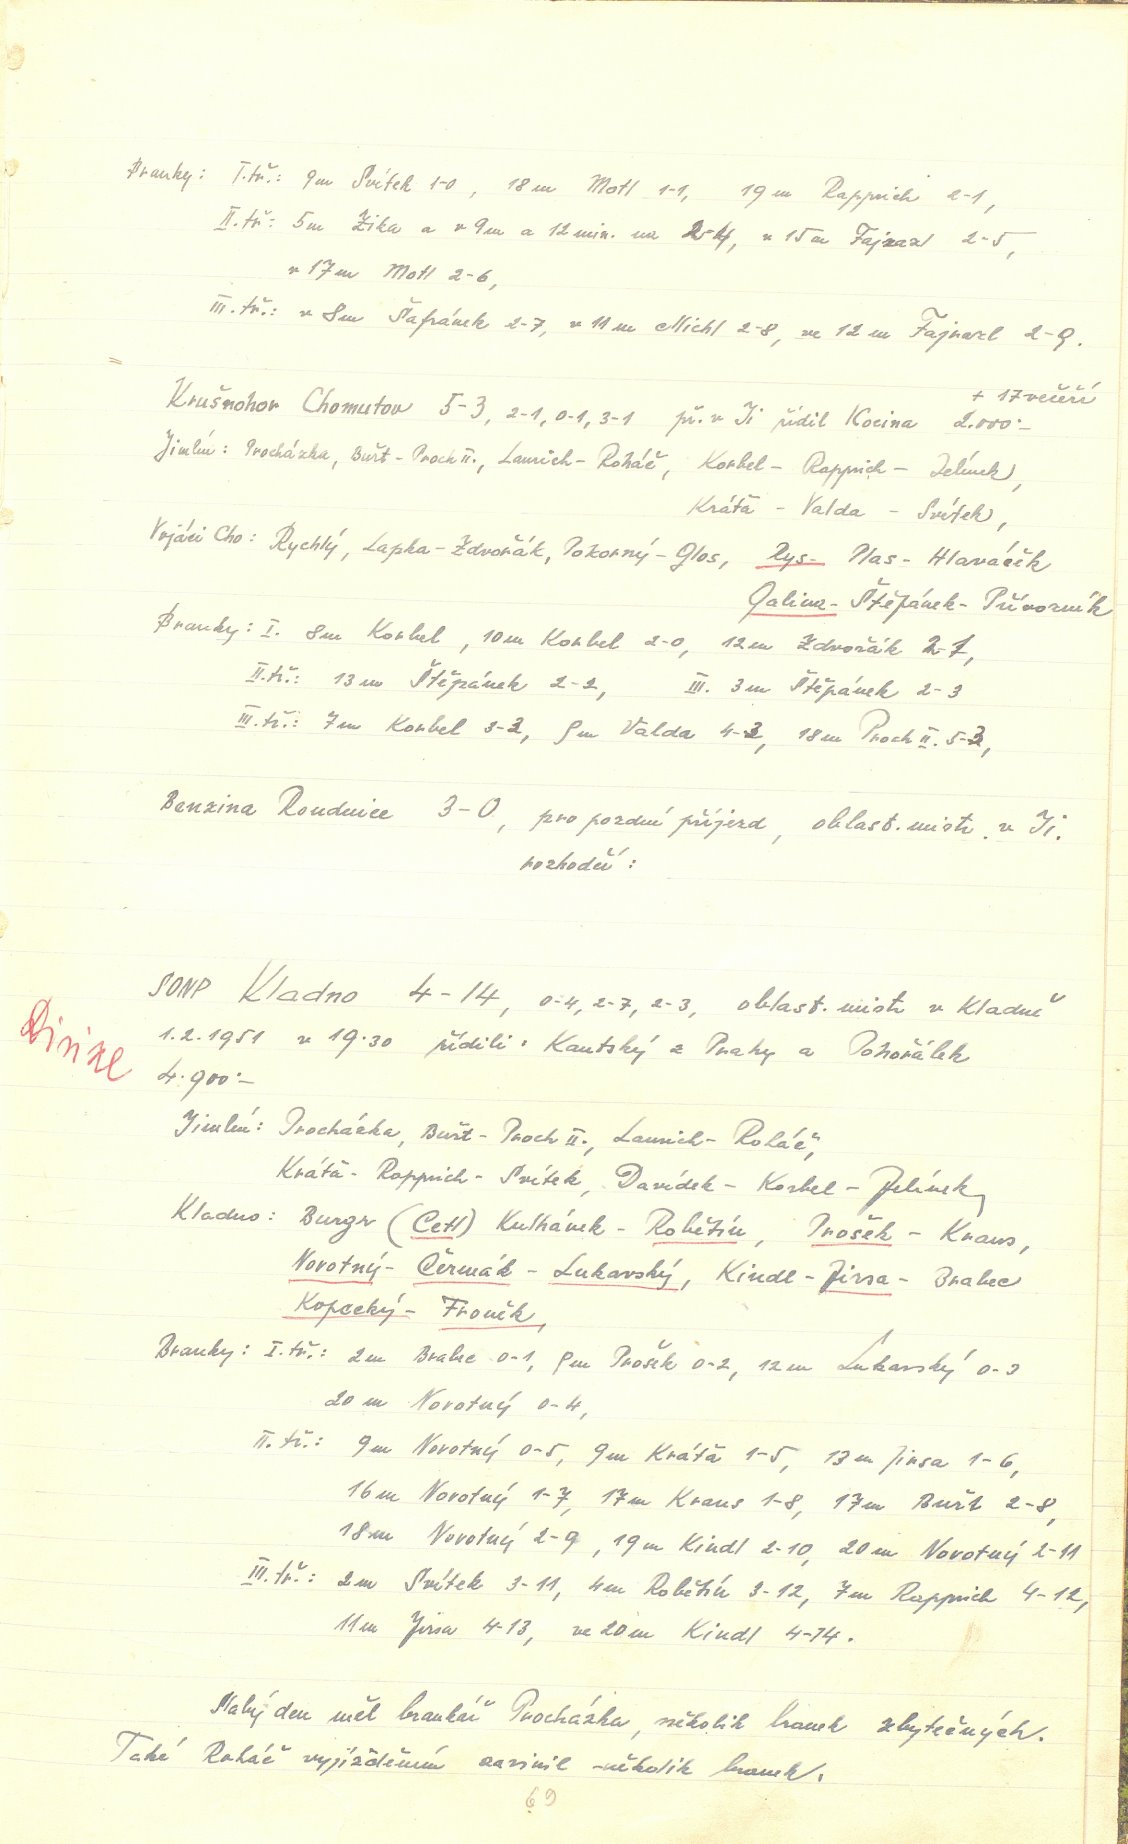 Branky: I.tř.: 9m Svítek 1-0, 18m Motl 1-1, 19m Rappich 2-1,
II.tř: 5m Zika a v 9m a 12 min. na 2-4, v 15m Fajrazl 2-5,
v 17m Motl 2-6,
III.tř.: v 8m Šafránek 2-7, v 11m Michl 2-8, ve 12m Fajrazl 2-9.
+ 17 večeří
Krušnohor Chomutov 5-3, 2-1, 0-1, 3-1 př. v Ji řídil Kocina 2.000·-
Jimlín: Procházka, Buřt - Proch II., Laurich - Roháč, Korbel - Rappich - Jelínek,
Krátš - Valda - Svítek,
Vojáci Cho: Rychlý, Lapka - Zdvořák, Pokorný - Glos, Rys - Plas - Hlaváček
Galina - Štěpánek - Převozník
Branky: I. 8m Korbel, 10m Korbel 2-0, 12m Zdvořák 2-1,
II.tř.: 13m Štěpánek 2-2, III. 3m Štěpánek 2-3
III.tř.: 7m Korbel 3-3, 9m Valda 4-3, 18m Proch II. 5-3,
Benzina Roudnice 3-0, pro pozdní příjezd, oblast. mistr. v Ji.
rozhodčí:
SONP Kladno 4-14, 0-4, 2-7, 2-3, oblast. mistr v Kladně
Divize
1.2.1951 v 19·30 řídili: Kautský z Prahy a Pohořálek
4.900·-
Jimlín: Procházka, Buřt - Proch II., Laurich - Roháč,
Krátš - Rappich - Svítek, Davídek - Korbel - Jelínek,
Kladno: Burgr (Cetl) Kulhánek - Robětín, Prošek - Kraus,
Novotný - Čermák - Lukavský, Kindl - Jirsa - Brabec
Kopecký - Froněk,
Branky: I.tř.: 2m Brabec 0-1, 9m Prošek 0-2, 12m Lukavský 0-3
20m Novotný 0-4,
II.tř.: 9m Novotný 0-5, 9m Krátš 1-5, 13m Jirsa 1-6,
16m Novotný 1-7, 17m Kraus 1-8, 17m Buřt 2-8,
18m Novotný 2-9, 19m Kindl 2-10, 20m Novotný 2-11
III.tř.: 2m Svítek 3-11, 4m Robětín 3-12, 7m Rappich 4-12,
11m Jirsa 4-13, ve 20m Kindl 4-14.
Slabý den měl brankář Procházka, několik branek zbytečných.
Také Roháč vyjížděním zavinil několik branek.
69